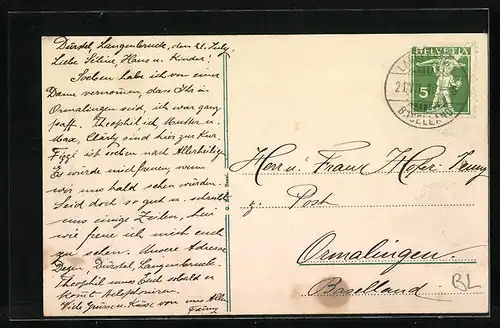 Dürstel, Langenbruck, den 21. July.
Liebe Seline, Hans u. Kinder!
Soeben habe ich von einer
Dame vernommen, dass Ihr in
Ormalingen seid, ich war ganz
paff. Theophil ich Mutter u.
Max, Clärly sind hier zur Kur.
ist soeben nach Allerheilige
Es würde mich freuen, wenn
wir uns bald sehen würden.
Seid doch so gut u. schreibt
uns einige Zeilen, hei
wie freue ich mich euch
zu sehen. Unsere Adresse
Dürstel, Langenbruck.
Theophil muss Euch sobald er
kommt telephonieren.
Viele Grüsse u. Küsse von uns Allen
HELVETIA
5
BASELLAND
Herr u. Frau Hofer
z. Post
Ormalingen.
Baselland.
BL